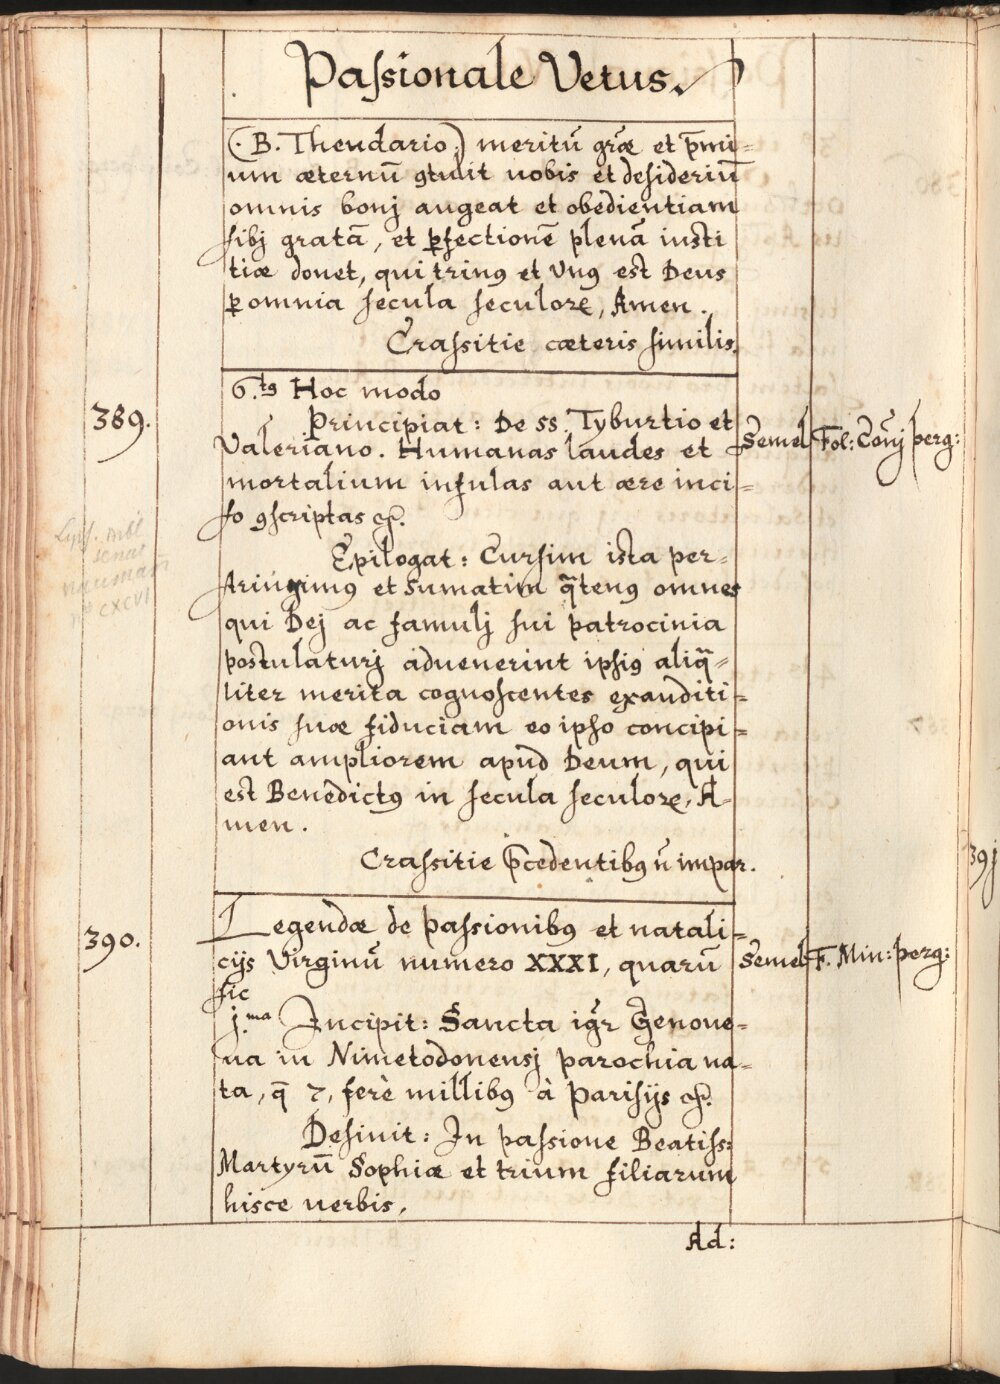 Paſsionale Vetus.
(. B. Theudario.) meritū grǣ et p̄mi=
um æternū ꝯtulit nobis et deſideriū
omnis bonj augeat et obedientiam
ſibj gratā, et ꝑfectionē plenā iusti
tiæ donet, qui trinꝰ et Vnꝰ est Deus
ꝑ omnia ſecula ſeculorꝫ, Amen.
Craſsitie cæteris ſimilis.
389.
6.tꝰ Hoc modo
Principiat: De SS. Tyburtio et
Valeriano. Humanas laudes et
mortalium infulas aut ære inci=
ſo ꝯscriptas &c.
Semel
Fol: Cōnj perg:
Epilogat: Curſim ista per=
ſtrinximꝰ et Sumatim q̄tenꝰ omnes
qui Dej ac famulj ſui patrocinia
postulaturj aduenerint ipſiꝰ aliq̄=
liter merita cognoſcentes exauditi=
onis ſuæ fiduciam eo ipſo concipi=
ant ampliorem apud Deum, qui
est Benedictꝰ in ſecula ſeculorꝫ, A=
men.
Craſsitie p̄cedentibꝰ ū impar.
390.
Legendæ de paſsionibꝰ et natali=
cijs Virginū numero XXXI, quarū
ſic
Semel
F. Min: perg:
j.ma Incipit: Sancta igr̄ Genoue=
ua in Nimetodonensj parochia na=
ta, q̄ 7, ferè millibꝰ à Pariſijs &c.
Deſinit: In paſsione Beatiſs:
Martyrū Sophiæ et trium filiarum
hisce uerbis,
Ad:
39j